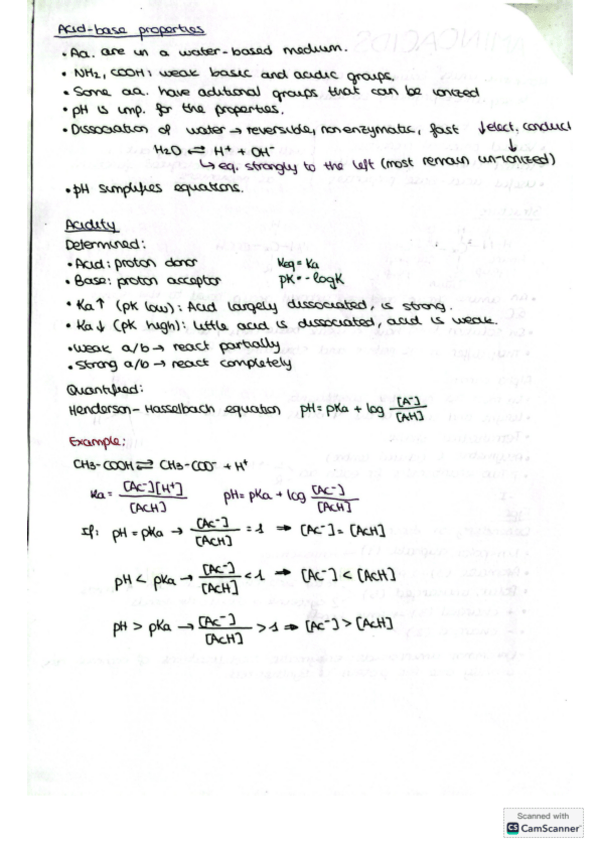 Acid-base properties
• Aa. are in a water-based medium.
• NH2, COOH: weak basic and acidic groups.
• Some aa. have aditional groups that can be ionized
• pH is imp. for the properties.
• Dissociation of water → reversible, nonenzymatic, fast ↓elect. conduct
H2O ⇌ H⁺ + OH⁻ ↓
↳ eq. strongly to the left (most remain un-ionized)
• pH simplifies equations.
Acidity
Determined:
• Acid: proton donor Keq = Ka
• Base: proton acceptor pK = -logK
• Ka ↑ (pK low): Acid largely dissociated, is strong.
• Ka ↓ (pK high): Little acid is dissociated, acid is weak.
• Weak a/b → react partially
• Strong a/b → react completely
Quantified:
Henderson-Hasselbach equation pH = pKa + log [A⁻]/[AH]
Example:
CH3-COOH ⇌ CH3-COO⁻ + H⁺
Ka = [Ac⁻][H⁺]/[AcH] pH = pKa + log [Ac⁻]/[AcH]
If: pH = pKa → [Ac⁻]/[AcH] = 1 ⇒ [Ac⁻] = [AcH]
pH < pKa → [Ac⁻]/[AcH] < 1 ⇒ [Ac⁻] < [AcH]
pH > pKa → [Ac⁻]/[AcH] > 1 ⇒ [Ac⁻] > [AcH]
Scanned with
CS CamScanner